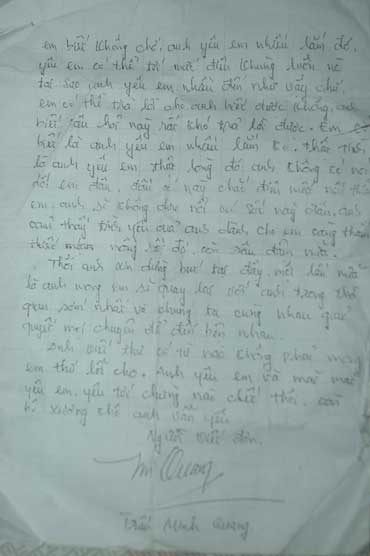 em biết không chớ, anh yêu em nhiều lắm đó,
yêu em có thể tới mức điên khùng luôn nè
tại sao anh yêu em nhiều đến như vậy chứ,
em có thể trả lời cho anh biết được không, anh
biết câu hỏi này rất khó trả lời được. Em
biết là anh yêu em nhiều lắm thật
là anh yêu em thật lòng đó, anh không có nói
dối em đâu, dẫu có này chắc đến một nói
em, anh sẽ không đưa nữa, anh
cảm thấy tình yêu anh dành cho em càng thêm
nồng hơn đó, còn sâu đậm nữa.
Thôi anh xin dừng bút tại đây, một lần nữa
là anh mong em sẽ quay lại với anh trong thời
gian sớm nhất và chúng ta cùng nhau giải
quyết mọi chuyện để đến bên nhau.
Anh viết thư có từ nào không phải mong
em thứ lỗi cho. Anh yêu em và mãi mãi
yêu em, yêu tới chừng nào chết thôi, còn
bộ xương khô anh vẫn yêu
Người viết đơn.
Quang
Trần Minh Quang